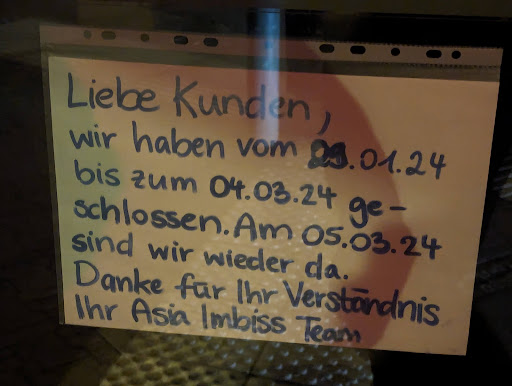 Liebe Kunden,
wir haben vom .01.24
bis zum 04.03.24 ge-
schlossen. Am 05.03.24
sind wir wieder da.
Danke für Ihr Verständnis
Ihr Asia Imbiss Team